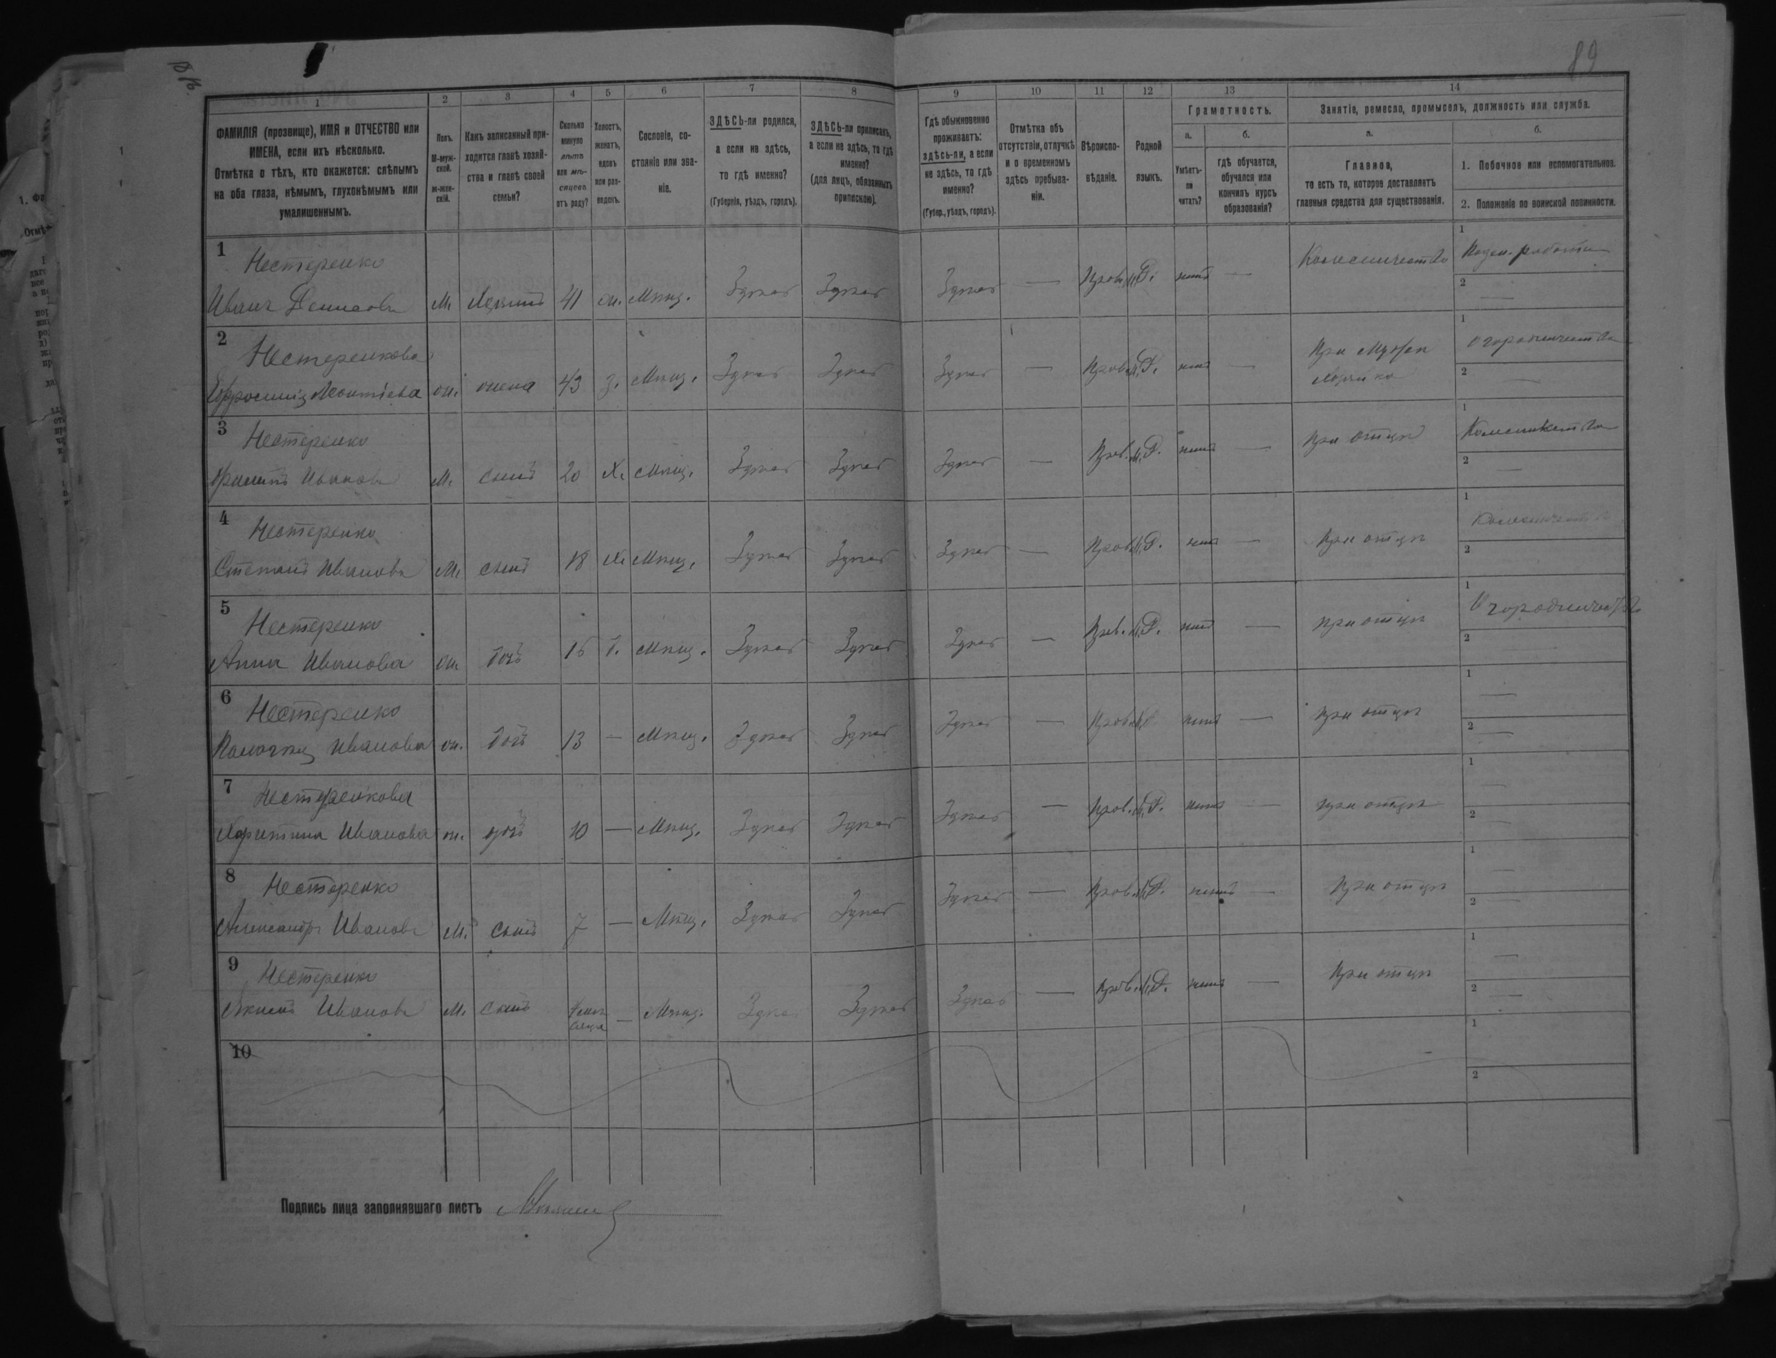 89
1 2 3 4 5 6 7 8 9 10 11 12 13 14
ФАМИЛІЯ (прозвище), ИМЯ и ОТЧЕСТВО или
ИМЕНА, если ихъ нѣсколько.
Отмѣтка о тѣхъ, кто окажется: слѣпымъ
на оба глаза, нѣмымъ, глухонѣмымъ или
умалишеннымъ.
Полъ.
М-муж-
ской.
ж-жен-
скій.
Какъ записанный при-
ходится главѣ хозяй-
ства и главѣ своей
семьи?
Сколько
минуло
лѣтъ
или мѣ-
сяцевъ
отъ роду?
Холостъ,
женатъ,
вдовъ
или раз-
веденъ.
Сословіе, со-
стояніе или зва-
ніе.
ЗДѢСЬ-ли родился,
а если не здѣсь,
то гдѣ именно?
(Губернія, уѣздъ, городъ).
ЗДѢСЬ-ли приписанъ,
а если не здѣсь, то гдѣ
именно?
(для лицъ, обязанныхъ
припискою).
Гдѣ обыкновенно
проживаетъ:
здѣсь-ли, а если
не здѣсь, то гдѣ
именно?
(Губер., уѣздъ, городъ).
Отмѣтка объ
отсутствіи, отлучкѣ
и о временномъ
здѣсь пребыва-
ніи.
Вѣроиспо-
вѣданіе.
Родной
языкъ.
Грамотность.
а. б.
Умѣетъ-
ли
читать?
гдѣ обучается,
обучался или
кончилъ курсъ
образованія?
Занятіе, ремесло, промыселъ, должность или служба.
а. б.
Главное,
то есть то, которое доставляетъ
главныя средства для существованія.
1. Побочное или вспомогательное.
2. Положеніе по воинской повинности.
1 Нестеренко
Иванъ Денисовъ м. 41 ж. Мѣщ. Здѣсь Здѣсь Здѣсь — Прав. М.Р. нѣтъ — 1
2 —
2 Нестеренкова
Ефросинія Леонтіева ж. жена 43 з. Мѣщ. Здѣсь Здѣсь Здѣсь — Прав. М.Р. нѣтъ — При мужѣ 1 огородничество
хозяйка 2 —
3 Нестеренко
Иванов м. сынъ 20 х. Мѣщ. Здѣсь Здѣсь Здѣсь — Прав. М.Р. нѣтъ — При отцѣ 1
2 —
4 Нестеренко
Степанъ Иванов м. сынъ 18 х. Мѣщ. Здѣсь Здѣсь Здѣсь — Прав. М.Р. нѣтъ — При отцѣ 1
2
5 Нестеренко
Анна Иванова ж. дочь Мѣщ. Здѣсь Здѣсь Здѣсь — Прав. М.Р. нѣтъ — При отцѣ 1 Огородничество
2
6 Нестеренко
Иванова ж. дочь 13 — Мѣщ. Здѣсь Здѣсь Здѣсь — Прав. нѣтъ — При отцѣ 1 —
2 —
7 Нестеренкова
Харитина Иванова ж. дочь 10 — Мѣщ. Здѣсь Здѣсь Здѣсь — Прав. М.Р. нѣтъ — При отцѣ 1 —
2 —
8 Нестеренко
Александръ Иванов м. сынъ 7 — Мѣщ. Здѣсь Здѣсь Здѣсь — Прав. М.Р. нѣтъ — При отцѣ 1 —
2 —
9 Нестеренко
Иванов м. сынъ — Мѣщ. Здѣсь Здѣсь Здѣсь — Прав. М.Р. нѣтъ — При отцѣ 1 —
2 —
10 1
2
Подпись лица заполнявшаго листъ